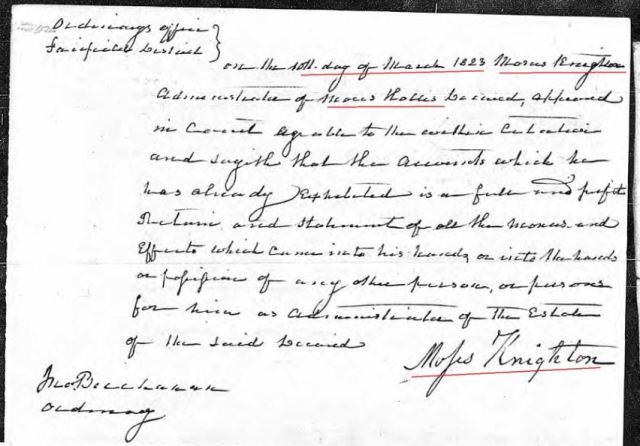 Ordinarys office
Fairfield District
on the 10th day of March 1823 Moses Knighton
Administrator of Moses Hollis Deceased, appeared
in Court agreable to the within Citation
and sayith that the Accounts which he
has already Exhibited is a full and perfect
Return and Statement of all the monies and
Effects which came into his hands, or into the hands
or possession of any other person, or persons
for him as Administrator of the Estate
of the said Deceased
Moses Knighton
Jno. Buchanan
Ordinary